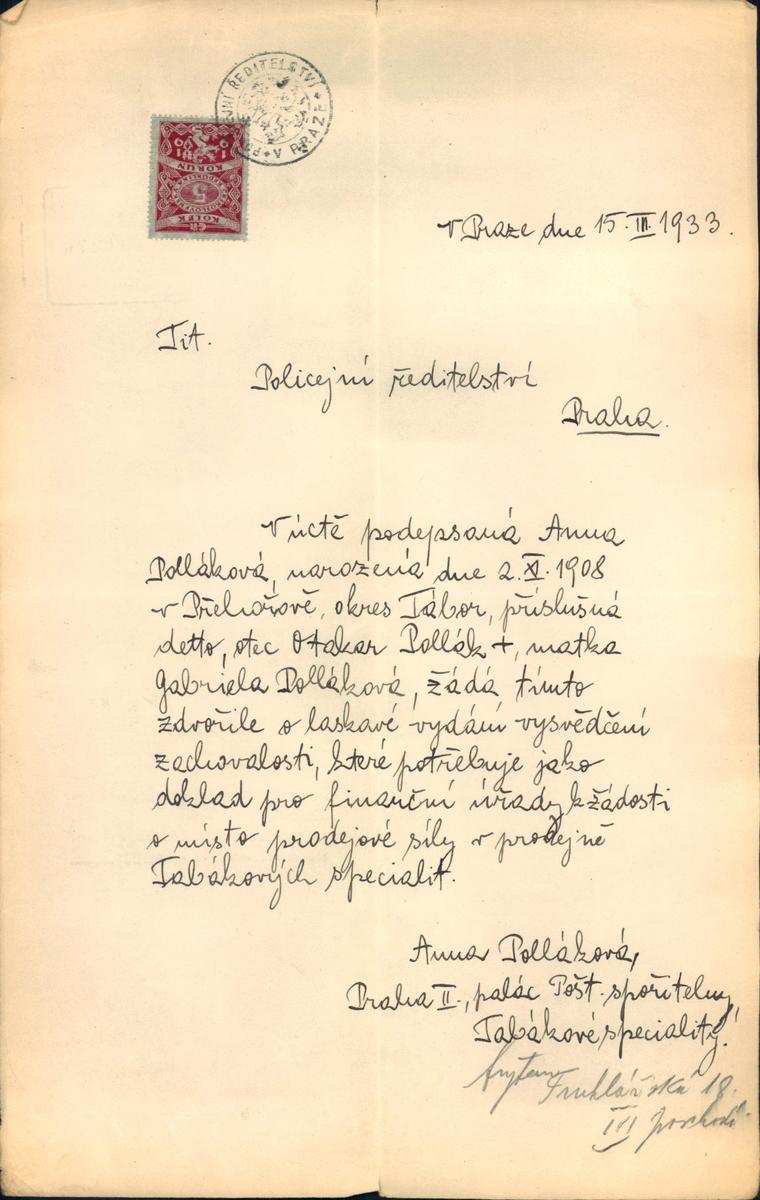 POLICEJNÍ ŘEDITELSTVÍ V PRAZE
KOLEK
5
KORUN
1919
v Praze dne 15.III.1933.
Tit.
Policejní ředitelství
Praha.
V úctě podepsaná Anna
Polláková, narozená dne 2.XI.1908
v Přehořově, okres Tábor, příslušná
detto, otec Otakar Pollák +, matka
Gabriela Polláková, žádá tímto
zdvořile o laskavé vydání vysvědčení
zachovalosti, které potřebuje jako
doklad pro finanční úřady k žádosti
o místo prodejové síly v prodejně
Tabákových specialit.
Anna Polláková,
Praha II., palác Pošt. spořitelny,
Tabákové speciality.
bytem Truhlářská 18.
III poschodí